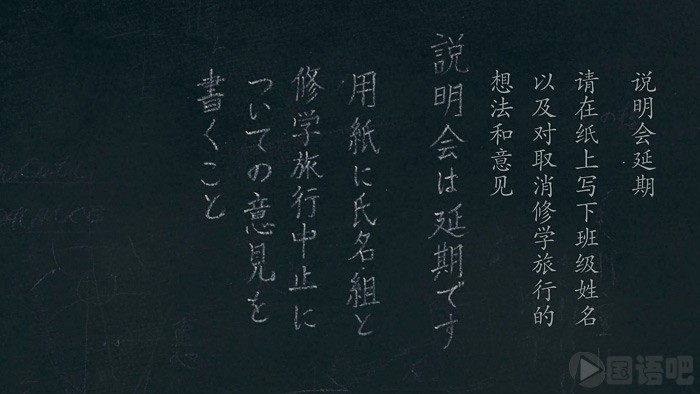 说明会延期
请在纸上写下班级姓名
以及对取消修学旅行的
想法和意见
説明会は延期です
用紙に氏名組と
修学旅行中止に
ついての意見を
書くこと
国语吧